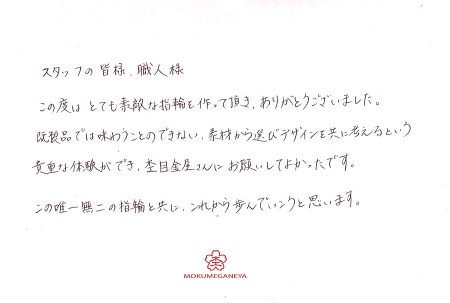 スタッフの皆様、職人様
この度は とても素敵な指輪を作って頂き、ありがとうございました。
既製品では味わうことのできない、素材から選びデザインを共に考えるという
貴重な体験ができ、杢目金屋さんにお願いしてよかったです。
この唯一無二の指輪と共に、これから歩んでいこうと思います。
MOKUMEGANEYA